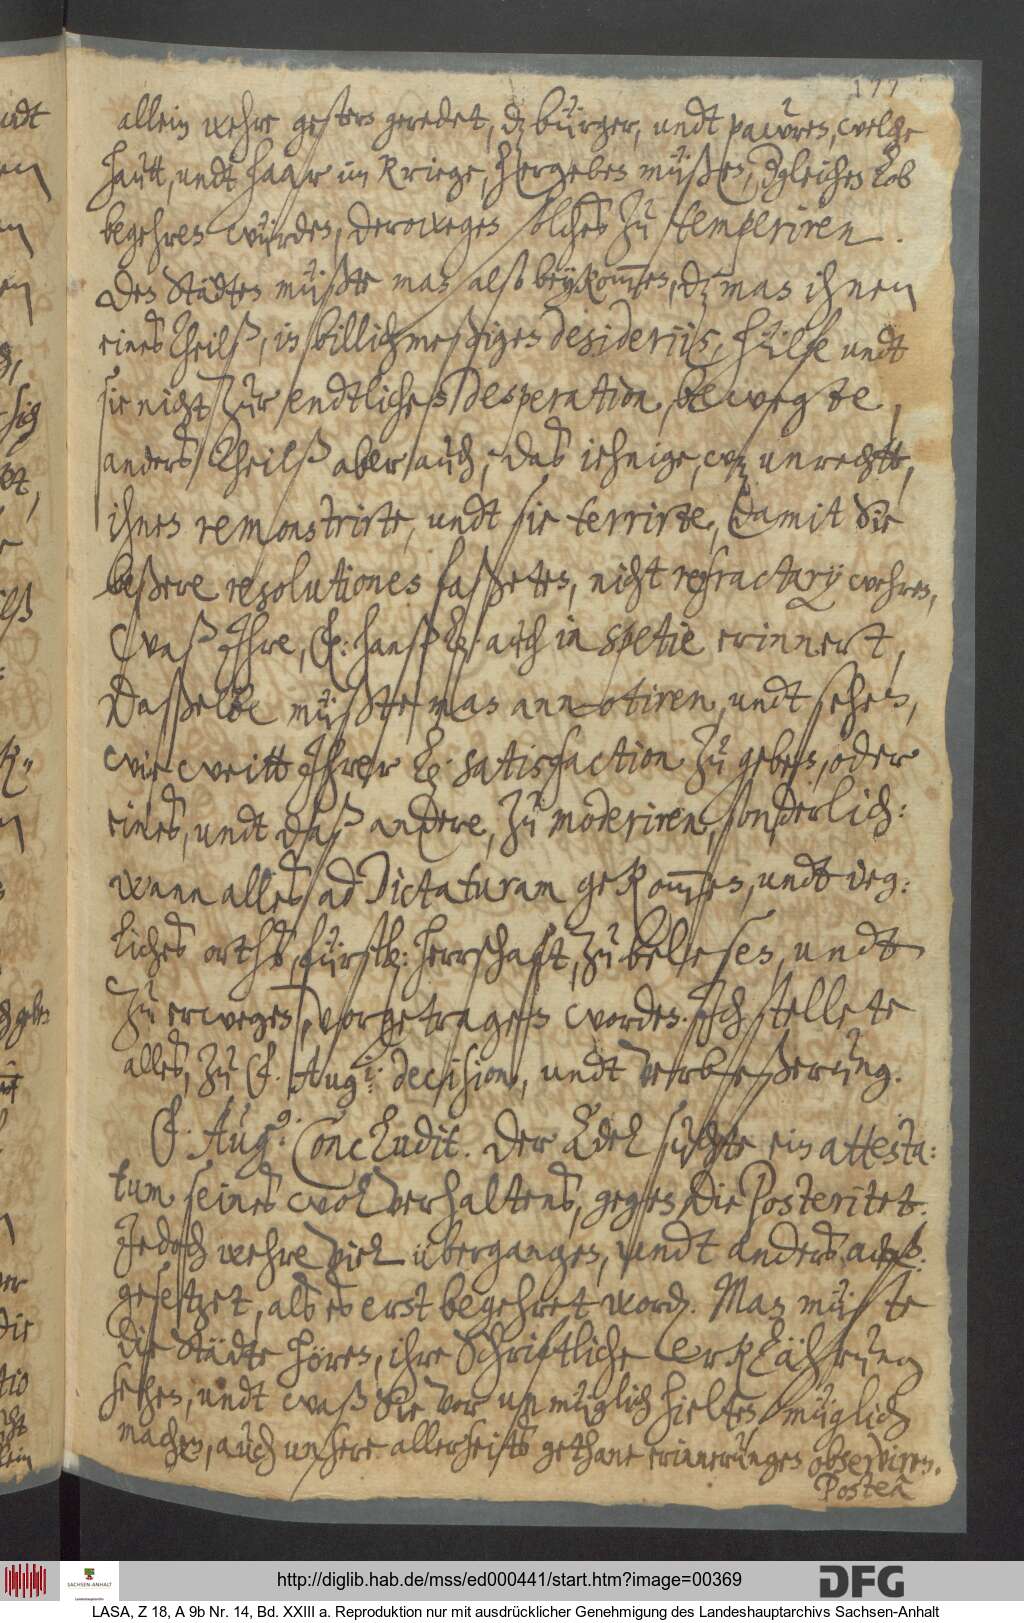 177
allein wehre gestern geredet, dz bürger, undt pawren, welche
hautt, undt haar im Kriege, hergeben müßen, dergleichen Lob
begehren würden, derowegen solches zu temperiren.
Den Städten müßte man also beykommen, dz man ihnen
eines theilß, in billichmeßigen desideriis, hülfe undt
sie nicht zur endtlichen desperation, bewegte,
anders theilß aber auch, das iehnige, wz unrecht,
ihnen remonstrirte, undt sie terrirte, damit Sie
beßere resolutiones faßeten, nicht refractarij wehren,
Waß Ihre, E: hanß E. auch in specie erinnert,
Daßelbe müßte man annotiren, undt sehen,
wie weitt Ihrer E. satisfaction zu geben, oder
eines, undt daß andere, zu moderiren, sonderlich:
wann alles ad Dictaturam gekommen, undt ieg:
liches orths fürstl: herrschaft, zu belesen, undt
zu erwegen, vorgetragen worden. Ich stellete
alles, zu F. Augi: decision, undt verbeßerung.
F. Aug9: Concludit. Der Adel suchte ein attesta:
tum seines wolverhaltens, gegen die Posteritet.
Jedoch wehre viel übergangen, undt anders auß:
gesetzet, als es erst begehret word. Man müste
die Städte hören, ihre Schriftliche erklährung
sehen, undt waß Sie vor unmüglich hielten, müglich
machen, auch unsere allerseits gethane erinnerungen observiren.
Postea
http://diglib.hab.de/mss/ed000441/start.htm?image=00369
SACHSEN-ANHALT
DFG
LASA, Z 18, A 9b Nr. 14, Bd. XXIII a. Reproduktion nur mit ausdrücklicher Genehmigung des Landeshauptarchivs Sachsen-Anhalt